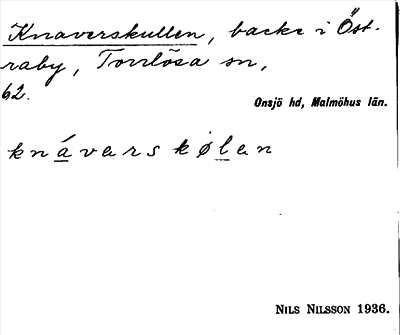 Knaverskullen, backe i Öst-
raby, Torrlösa sn,
62.
Onsjö hd, Malmöhus län.
knáverskølen
NILS NILSSON 1936.